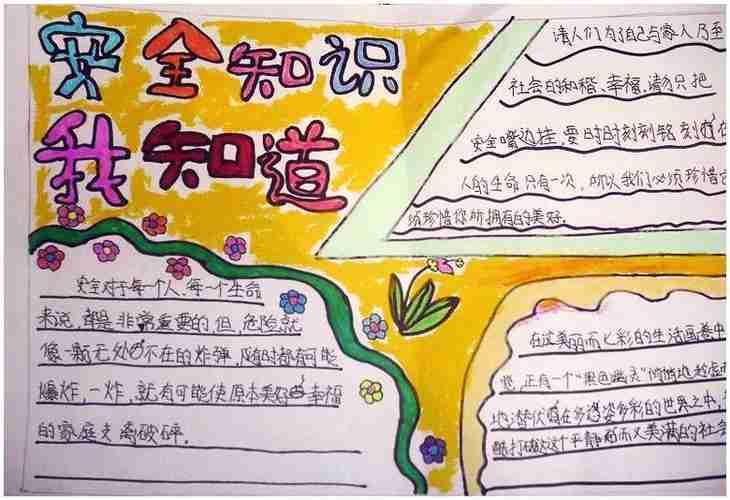 安全知识
我知道
请人们为了自己与家人乃至
社会的和谐、幸福,请勿只把
安全嘴边挂,要时时刻刻铭刻在
人的生命只有一次,所以我们必须珍惜
须珍惜您所拥有的美好。
安全对于每一个人、每一个生命
来说,都是非常重要的,但,危险就
像一颗无处不在的炸弹,随时都有可能
爆炸,一炸,就有可能使原本美好幸福
的家庭支离破碎。
在这美丽而七彩的生活画卷中
您,正有一个“黑色幽灵”悄悄地
地潜伏在多姿多彩的世界之中,
酷打破这个平静而又美满的社会